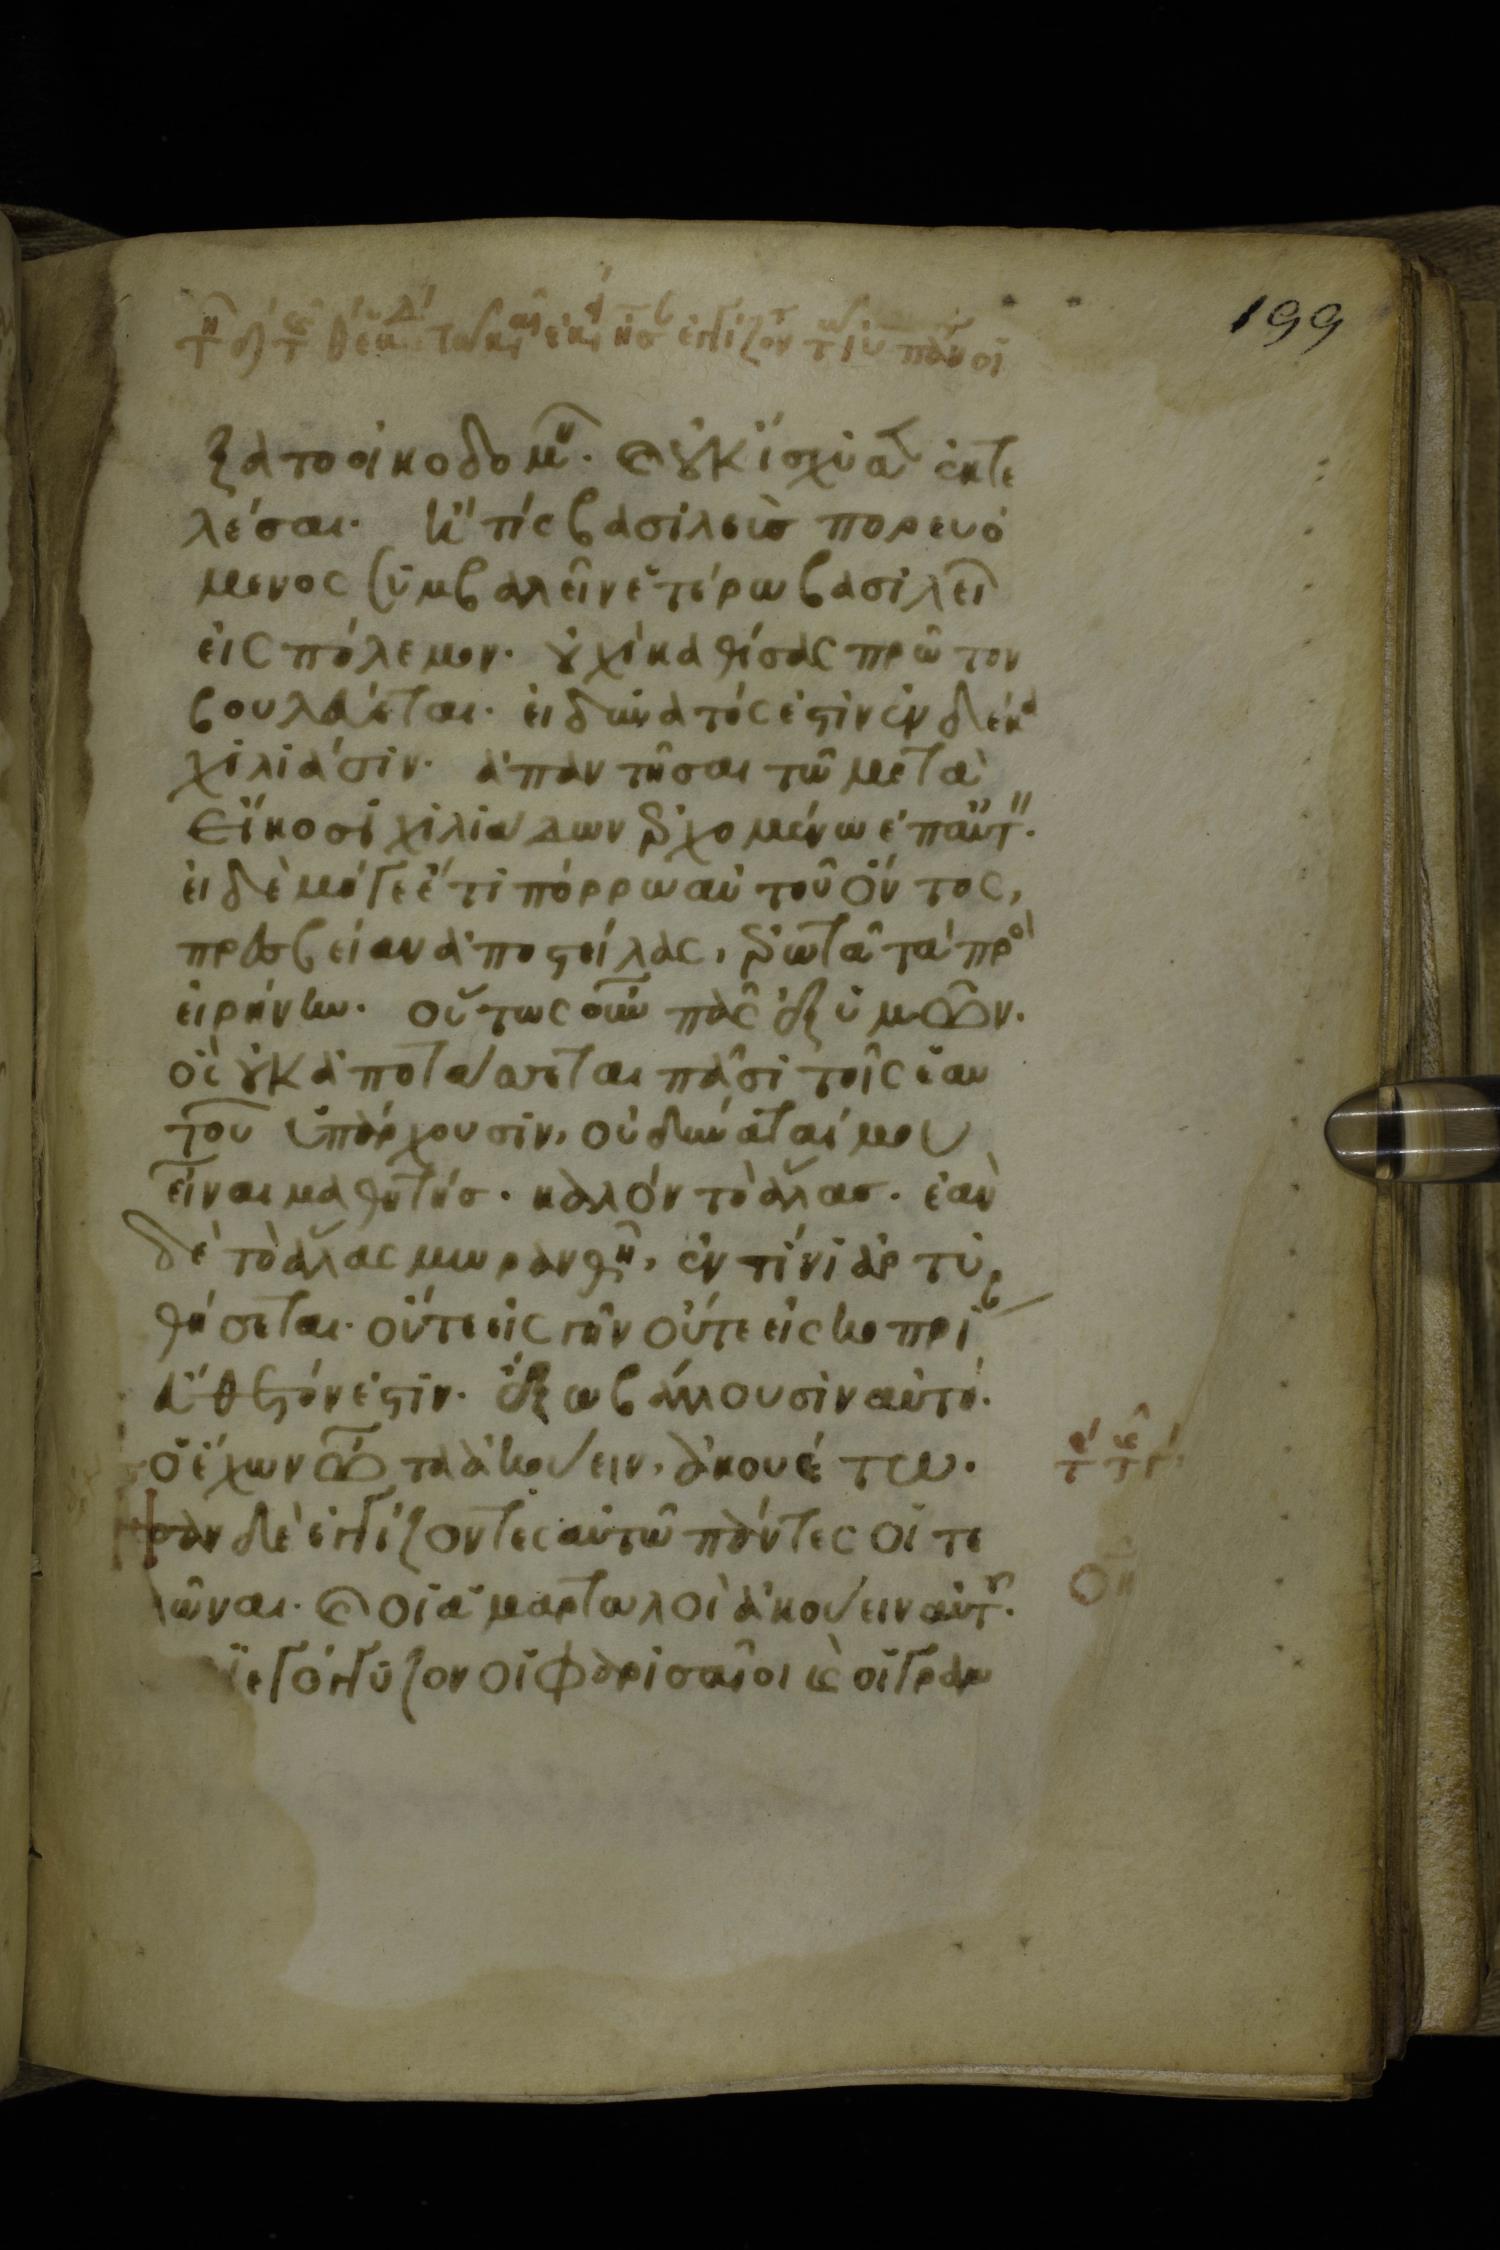 199
ξατο οικοδομην. καὶ οὐκ ἴσχυσεν ἐκτε
λέσαι. ἢ τίς βασιλεὺς πορευό
μενος συμβαλεῖν ἑτέρω βασιλεῖ
εἰς πόλεμον. οὐχὶ καθίσας πρῶτον
βουλεύεται. εἰ δυνατός ἐστὶν ἐν δέκα
χιλιάσιν. ἀπαντῆσαι τῶ μετὰ
εἴκοσι χιλιάδων ἐρχομένω ἐπ αὐτόν.
εἰ δὲ μήγε ἔτι πόρρω αὐτοῦ ὄντος,
πρεσβείαν ἀποστείλας, ἐρωτᾶ τὰ πρὸς
εἰρήνην. οὕτως οὖν πᾶς ἐξ ὑμῶν.
ὃς οὐκ ἀποτάσσεται πᾶσι τοῖς ἑαυ
τοῦ ὑπάρχουσιν, οὐ δύναταί μου
εἶναι μαθητής. καλὸν τὸ ἅλας. ἐὰν
δὲ τὸ ἅλας μωρανθῆ, ἐν τίνι ἀρτυ
θήσεται. οὔτε εἰς γῆν οὔτε εἰς κοπρί
αν εὔθετόν ἐστιν. ἔξω βάλλουσιν αὐτό.
ὁ ἔχων ὦτα ἀκούειν, ἀκουέτω.
Ησαν δὲ ἐγγίζοντες αὐτῶ πάντες οἱ τε
λῶναι. καὶ οἱ ἁμαρτωλοὶ ἀκούειν αὐτοῦ.
διεγόγγυζον οἱ Φαρισαῖοι καὶ οἱ γραμ